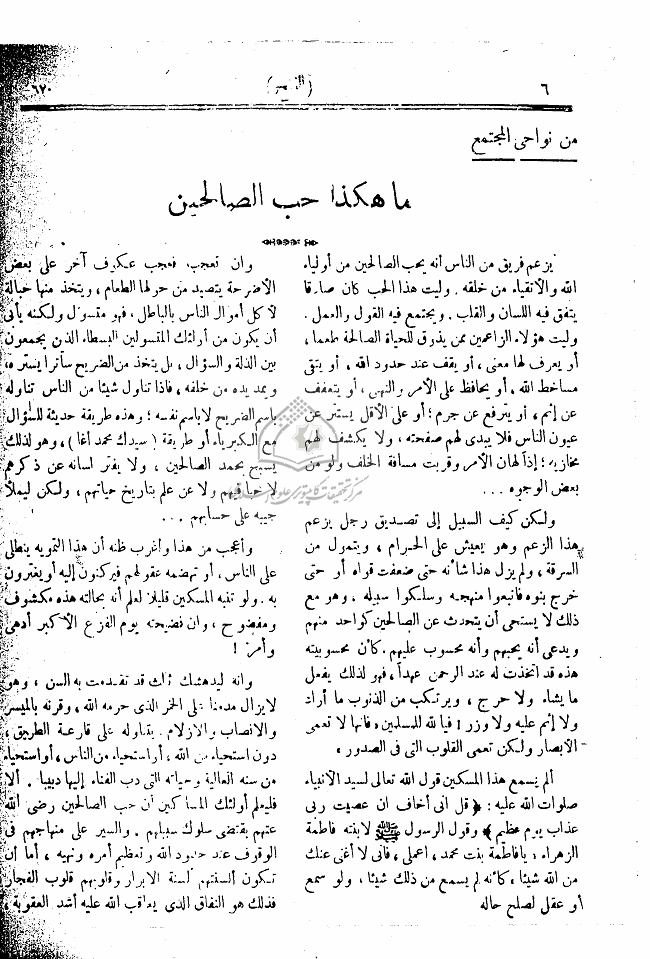 ٦
٦٧٠
من نواحي المجتمع
ما هكذا حب الصالحين
يزعم فريق من الناس أنه يحب الصالحين من أولياء
الله والأتقياء من خلقه. وليت هذا الحب كان صادقا
يتفق فيه اللسان والقلب. ويجتمع فيه القول والعمل.
وليت هؤلاء الزاعمين ممن يذوق للحياة الصالحة طعما،
أو يعرف لها معنى، أو يقف عند حدود الله، أو يتقى
مساخط الله، أو يحافظ على الأمر والنهى، أو يتعفف
عن إثم، أو يترفع عن جرم؛ أو على الأقل يستتر عن
عيون الناس فلا يبدى لهم صفحته، ولا يكشف لهم
مخازيه؛ إذاً لهان الأمر وقربت مسافة الخلف ولو من
بعض الوجوه...
ولكن كيف السبيل إلى تصديق رجل يزعم
هذا الزعم وهو يعيش على الحرام، ويتمول من
السرقة، ولم يزل هذا شأنه حتى ضعفت قواه أو حتى
خرج بنوه فاتبعوا منهجه وسلكوا سبيله، وهو مع
ذلك لا يستحى أن يتحدث عن الصالحين كواحد منهم
ويدعى أنه يحبهم وأنه محسوب عليهم. كأن محسوبيته
هذه قد اتخذت له عند الرحمن عهداً، فهو لذلك يفعل
ما يشاء ولا حرج، ويرتكب من الذنوب ما أراد
ولا إثم عليه ولا وزر! فيا لله للمسلمين، فانها لا تعمى
الأبصار ولكن تعمى القلوب التى فى الصدور،
ألم يسمع هذا المسكين قول الله تعالى لسيد الأنبياء
صلوات الله عليه: ﴿قل انى أخاف ان عصيت ربى
عذاب يوم عظيم﴾ وقول الرسول ﷺ لابنته فاطمة
الزهراء، يا فاطمة بنت محمد، اعملى، فانى لا أغنى عنك
من الله شيئا، كأنه لم يسمع من ذلك شيئا، ولو سمع
أو عقل لصلح حاله
وان تعجب فعجب عكوف آخر على بعض
الأضرحة يتصيد من حولها الطعام، ويتخذ منها حبالة
لأكل أموال الناس بالباطل، فهو متسول ولكنه يأبى
أن يكون من أولئك المتسولين البسطاء الذين يجمعون
بين الذلة والسؤال، بل يتخذ من الضريح ساترا يستتره،
ويمد يده من خلفه، فاذا تناول شيئا من الناس تناوله
باسم الضريح لا باسم نفسه؛ وهذه طريقة حديثة للسؤال
مع الكبرياء أو طريقة (سيدك محمد أغا)، وهو لذلك
يسبح بحمد الصالحين، ولا يفتر لسانه عن ذكرهم
لا حبا فيهم ولا عن علم بتاريخ حياتهم، ولكن ليملأ
جيبه على حسابهم...
وأعجب من هذا وأغرب ظنه أن هذا التمويه ينطلى
على الناس، أو تهضمه عقولهم فيركنون إليه أو يغترون
به. ولو تنبه المسكين قليلا لعلم أنه بحالته هذه مكشوف
ومفضوح، وان فضيحته يوم الفزع الأكبر أدهى
وأمر!
وانه ليدهشك ذلك قد تقدمت به السن، وهو
لا يزال مدمنا على الخمر الذى حرمه الله، وقرنه بالميسر
والانصاب والازلام. يتناوله على قارعة الطريق،
دون استحياء من الله، أو استحياء من الناس، أو استحياء
من سنه العالية وحياته التى دب الفناء إليها دبيبا. ألا
فليعلم أولئك المساكين أن حب الصالحين رضى الله
عنهم يقتضى سلوك سبيلهم. والسير على منهاجهم فى
الوقوف عند حدود الله وتعظيم أمره ونهيه، أما أن
تكون ألسنتهم ألسنة الابرار وقلوبهم قلوب الفجار
فذلك هو النفاق الذى يعاقب الله عليه أشد العقوبة،